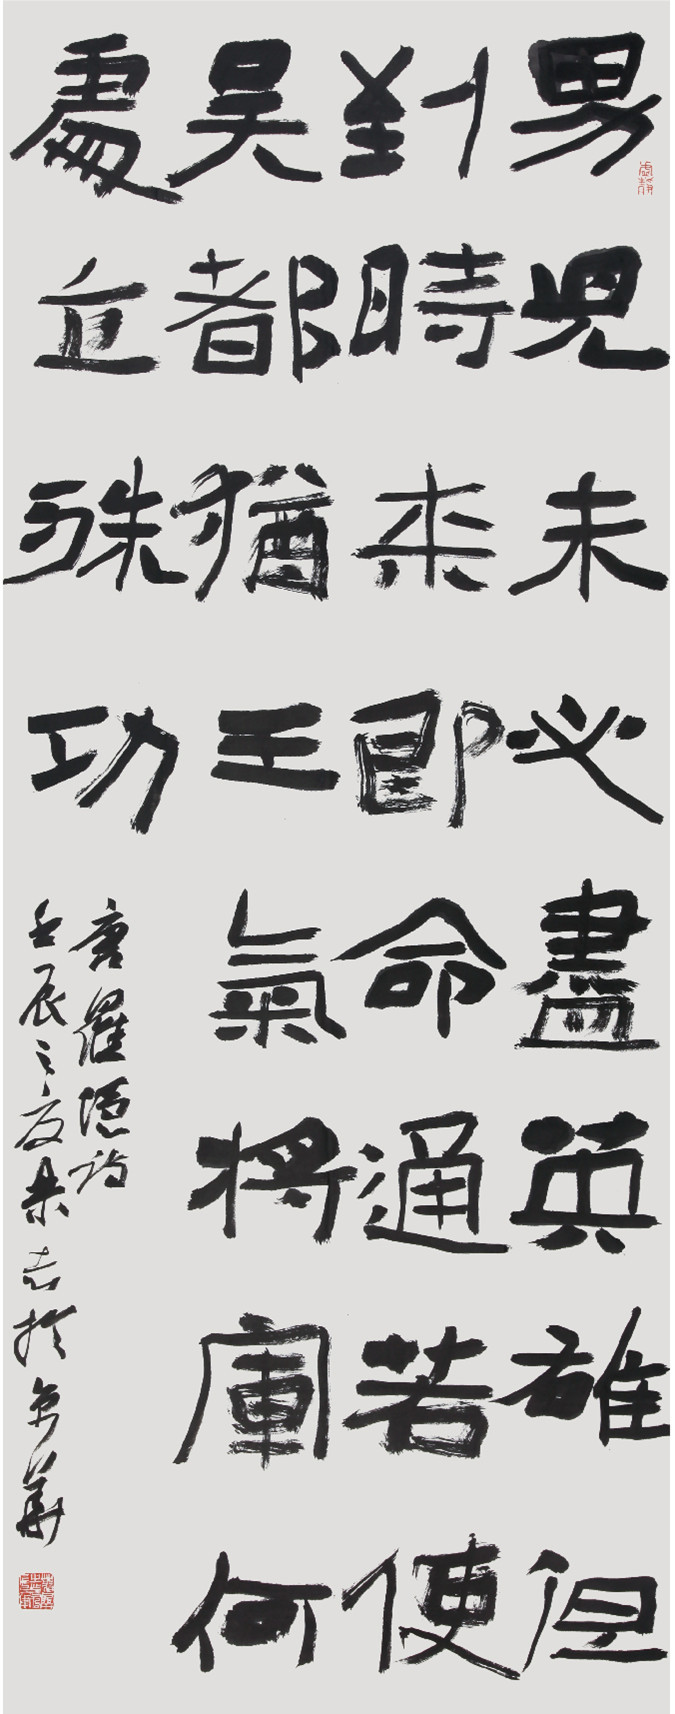 男兒未必盡英雄但
到時來即命通若使
吳都猶王氣將軍何
處立殊功
唐羅隱詩
壬辰之夏於京華